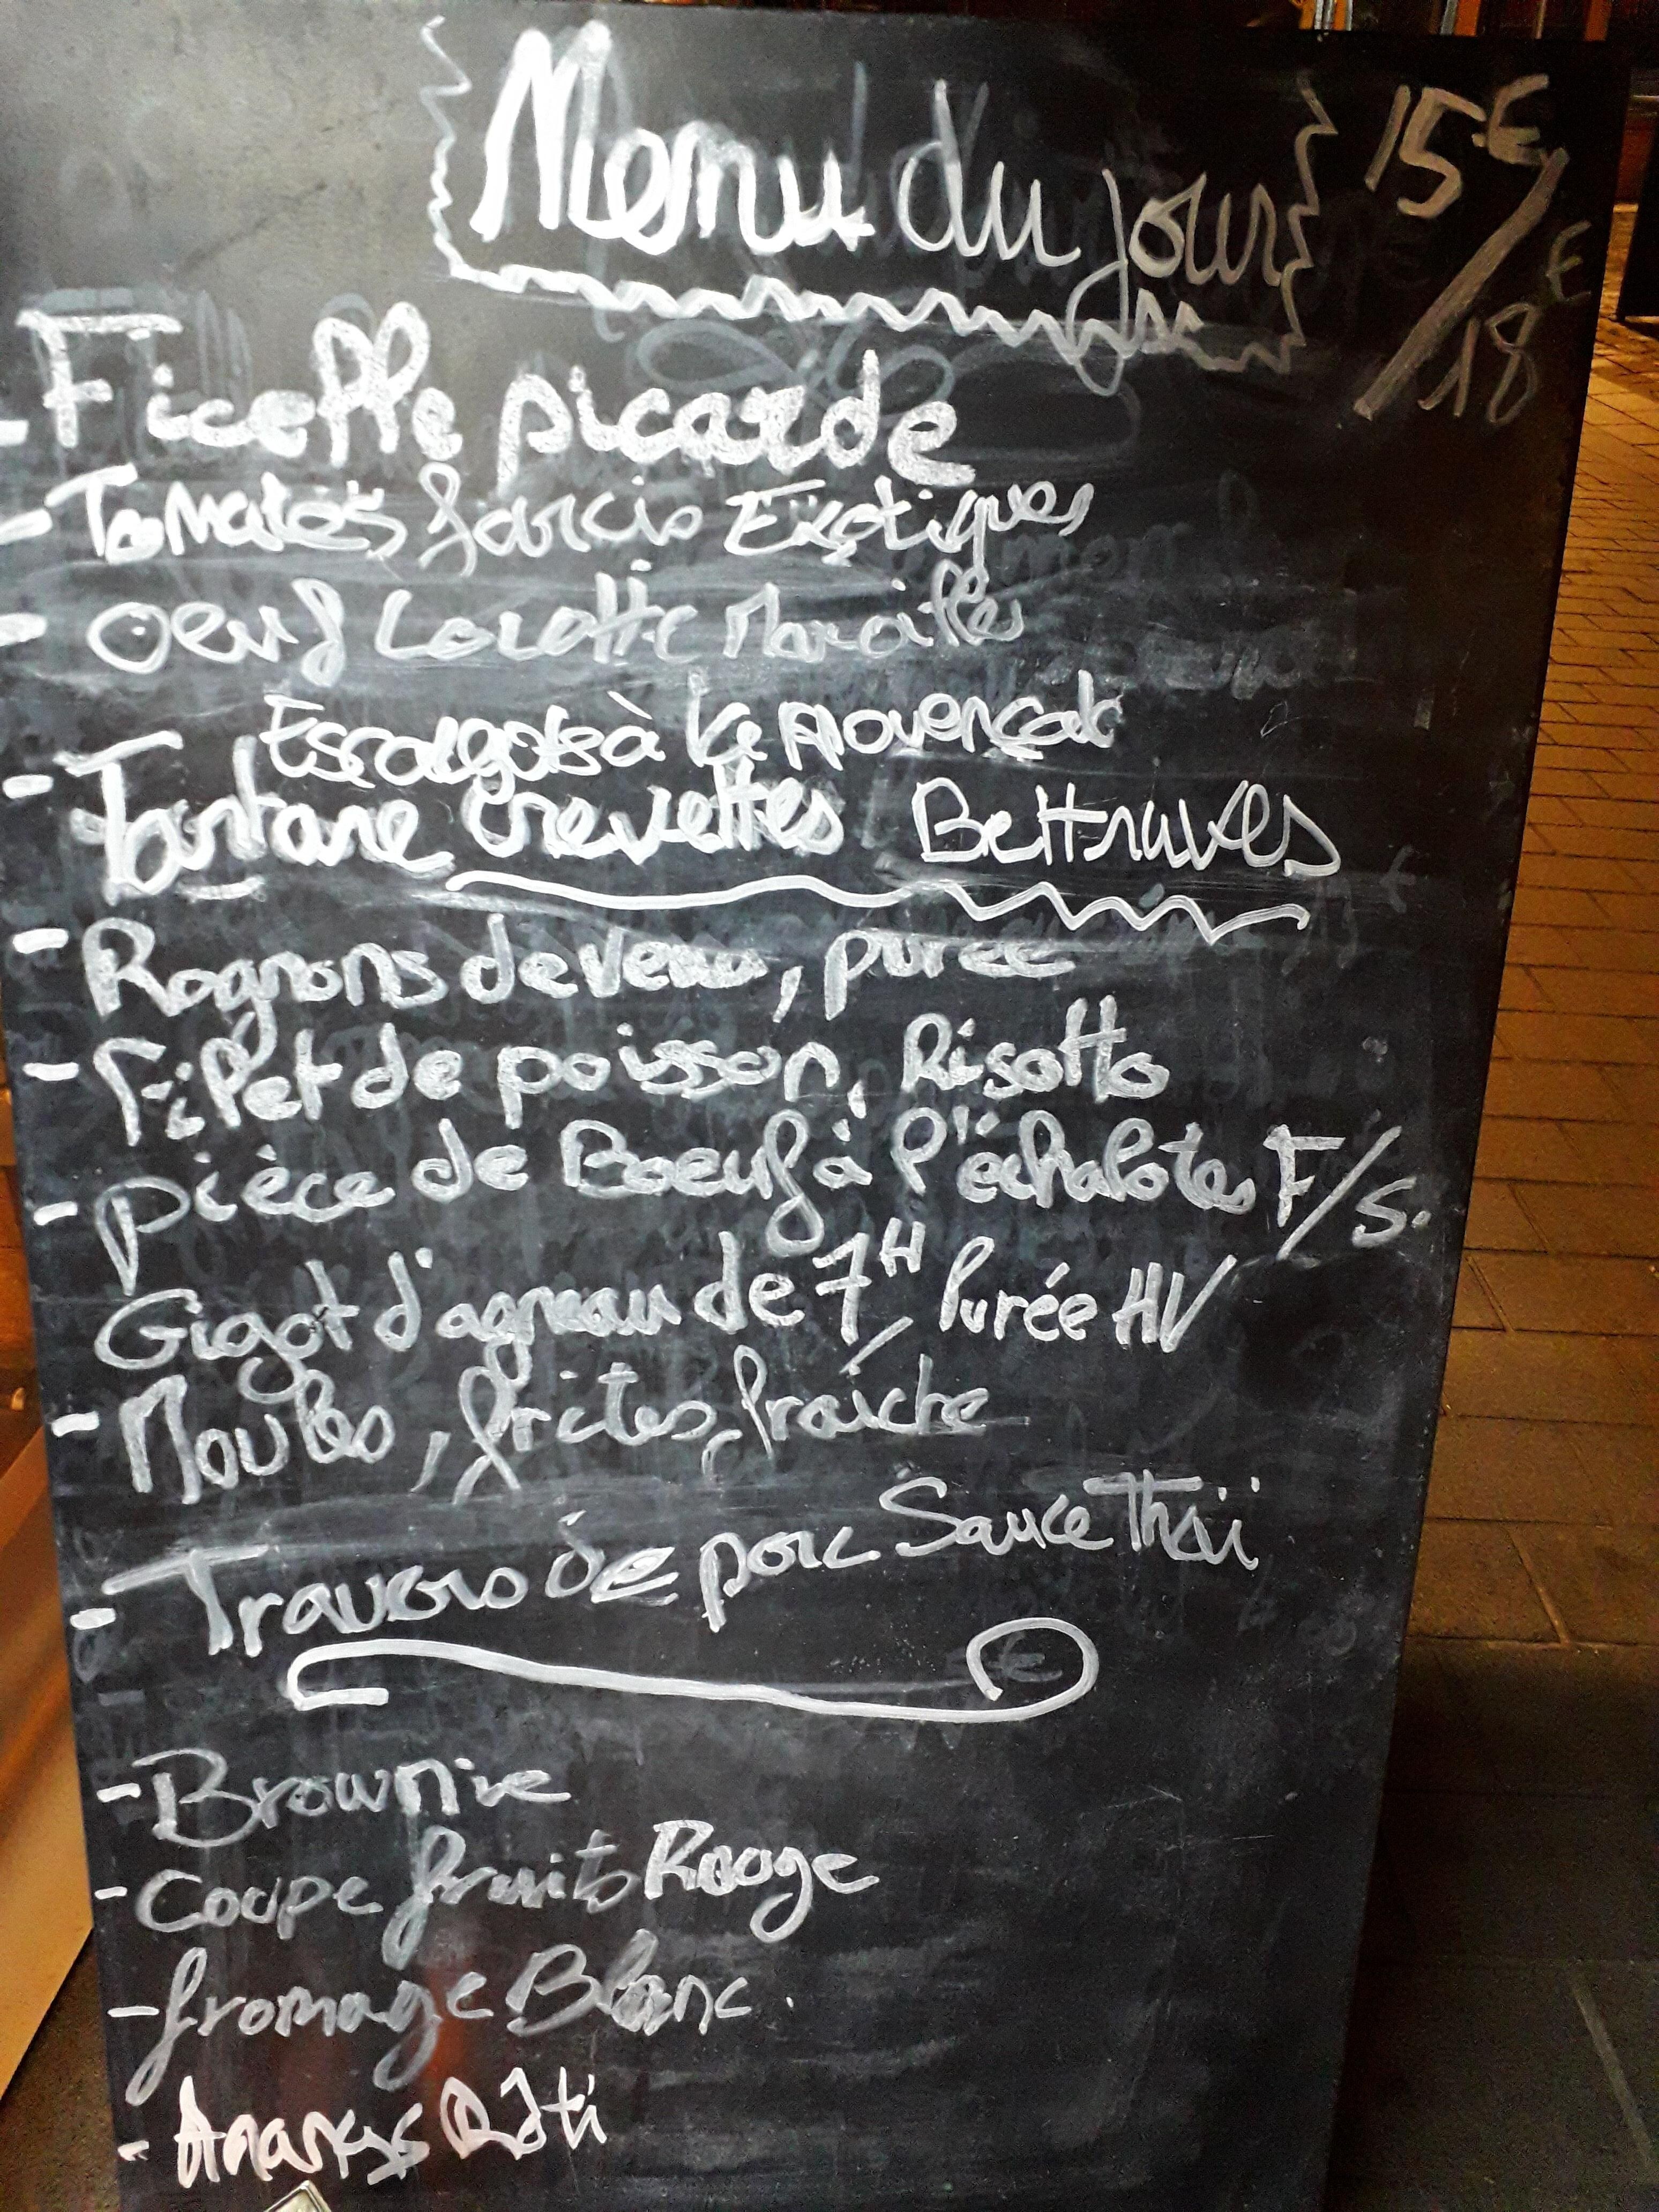 Menu du jour 15€/18€
- Ficelle picarde
- Tomates farcis Exotiques
- Oeuf Cocotte Maroilles
Escargots à la provençale
- Tartare crevettes Bettraves
- Rognons de veau, purée
- Filet de poisson, Risotto
- pièce de Boeuf à l'échalotes F/S.
Gigot d'agneau de 7H Purée HV
- Moules, frites fraîche
- Travers de porc Sauce Thaï
- Brownie
- Coupe fruits Rouge
- fromage Blanc.
- Ananas Rôti